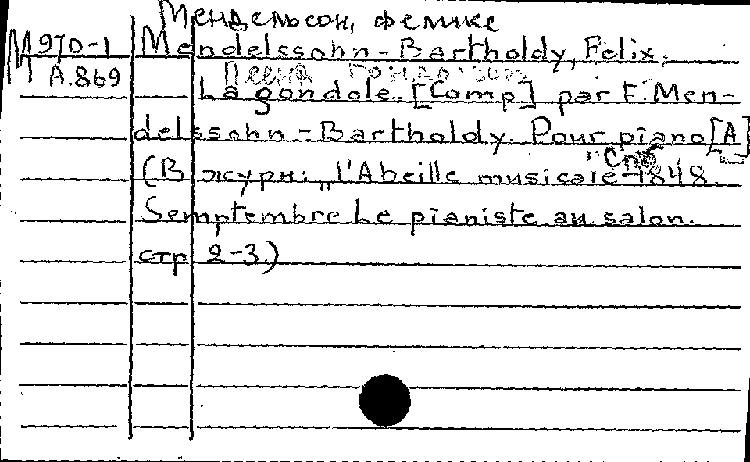 Мендельсон, Феликс
М 970-1 Mendelssohn-Bartholdy, Felix.
Песня
А.869 La gondole. [Comp] par F. Men-
delssohn-Bartholdy. Pour piano [А]
"Спб
(В журн: „l'Abeille musicale 1848
Semptembre Le pianiste au salon.
стр 2-3)